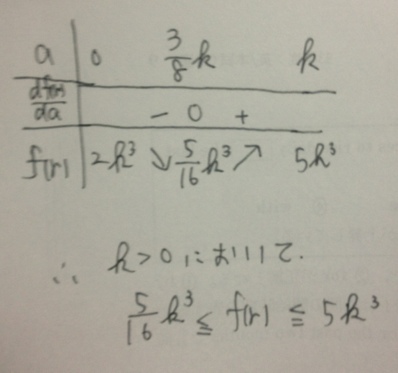 a 0 3/8 k k
df(r)/da − 0 +
f(r) 2k³ ↘ 5/16 k³ ↗ 5k³
∴ k>0 において.
5/16 k³ ≦ f(r) ≦ 5k³